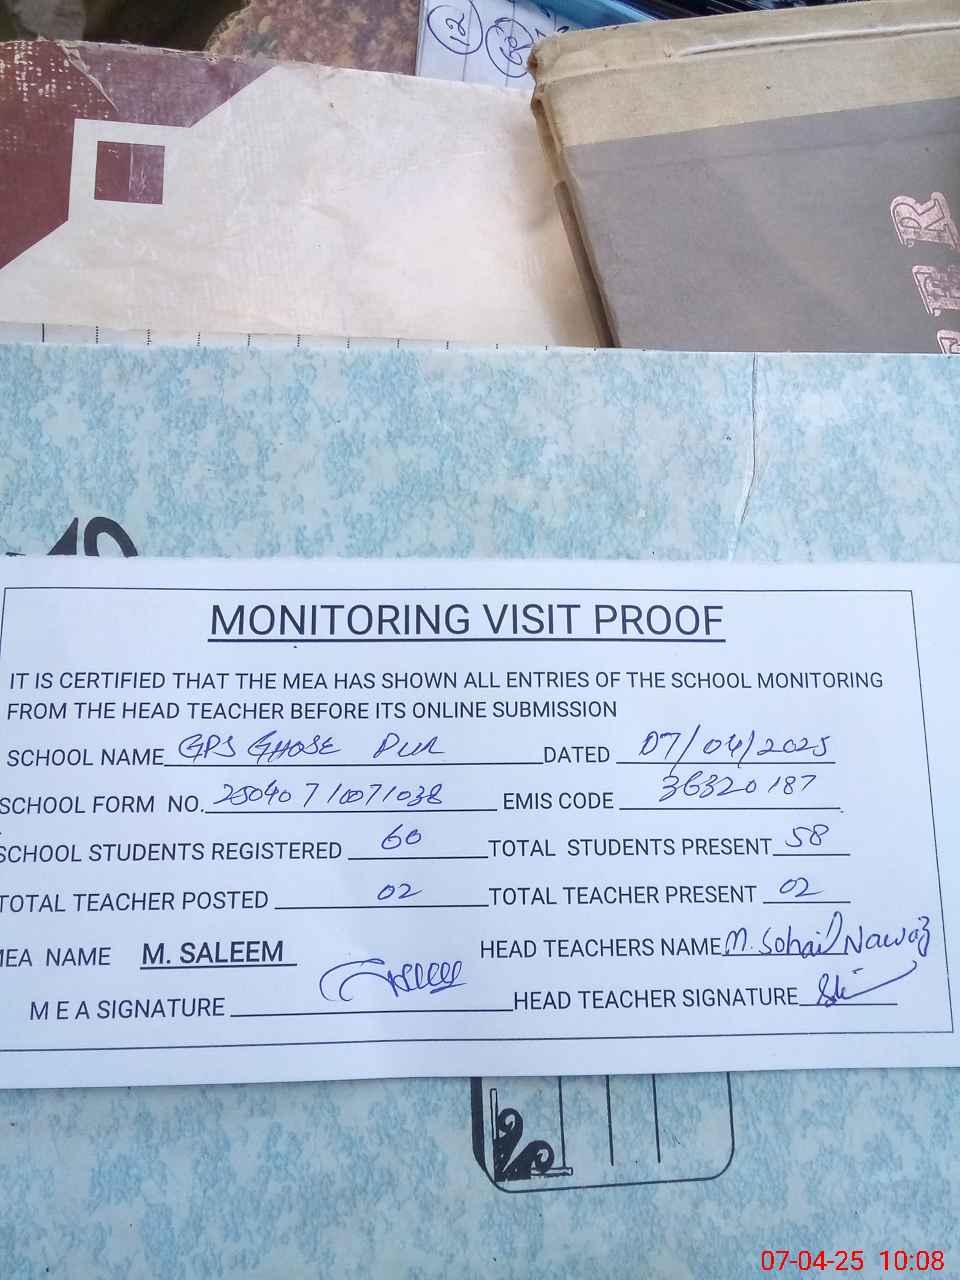 12
60
ER
MONITORING VISIT PROOF
IT IS CERTIFIED THAT THE MEA HAS SHOWN ALL ENTRIES OF THE SCHOOL MONITORING
FROM THE HEAD TEACHER BEFORE ITS ONLINE SUBMISSION
SCHOOL NAME GPS GHOSE PUR DATED 07/04/2025
SCHOOL FORM NO. 25040710071038 EMIS CODE 36320187
SCHOOL STUDENTS REGISTERED 60 TOTAL STUDENTS PRESENT 58
TOTAL TEACHER POSTED 02 TOTAL TEACHER PRESENT 02
MEA NAME M. SALEEM HEAD TEACHERS NAME M. Sohail Nawaz
M E A SIGNATURE HEAD TEACHER SIGNATURE
07-04-25 10:08